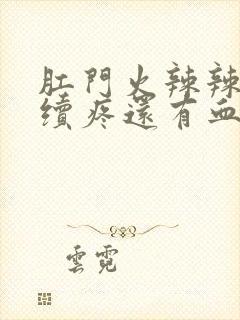 肛門火辣辣
續疼還有血
雲霓